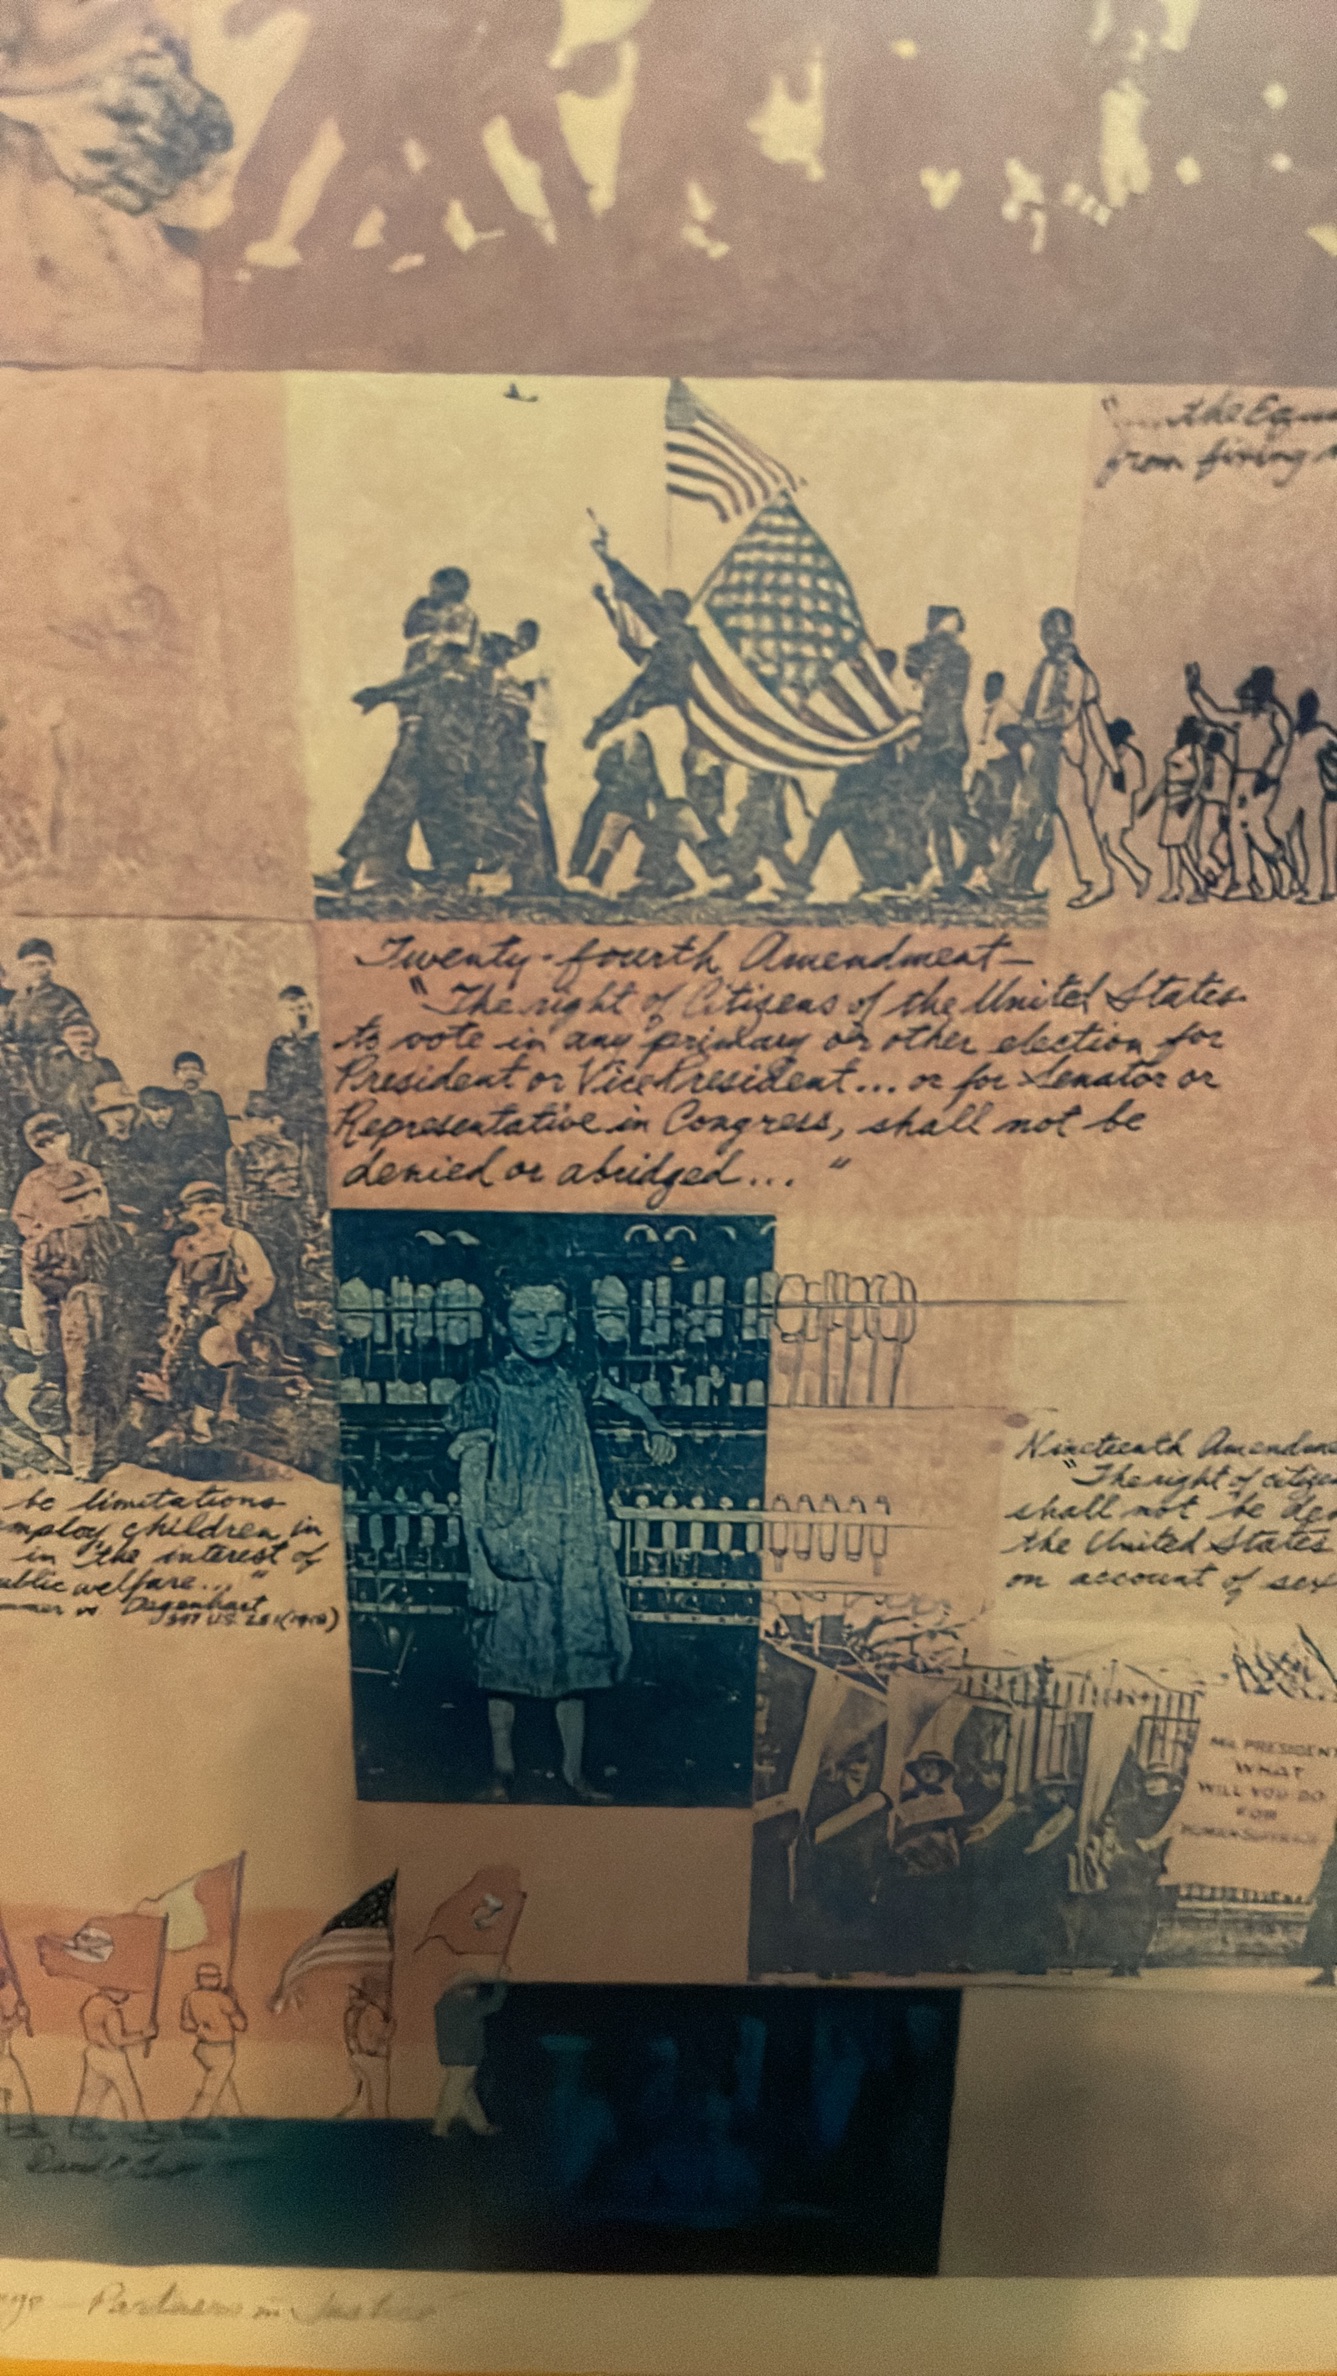 the Equ
from fixing
Twenty-fourth Amendment—
"The right of Citizens of the United States
to vote in any primary or other election for
President or Vice President... or for Senator or
Representative in Congress, shall not be
denied or abridged... "
be limitations
employ children in
in "the interest of
public welfare... "
v. Dagenhart
Nineteenth Amendme
"The right of citizen
shall not be den
the United States
on account of sex
MR. PRESIDENT
WHAT
WILL YOU DO
FOR
WOMAN SUFFRAGE
Partners in Justice